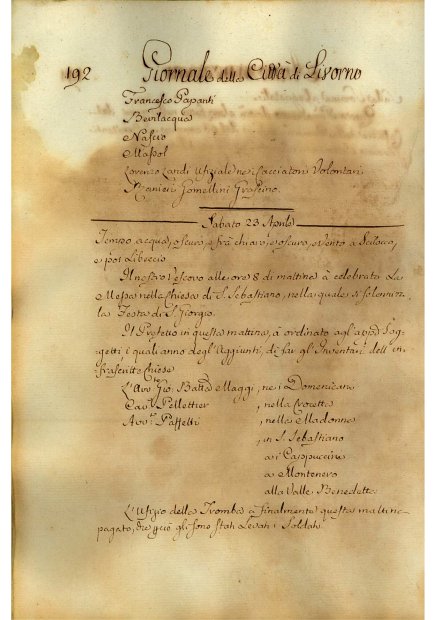 192 Giornale della Città di Livorno
Francesco Papanti
Bevilacqua
Nassio
Massol
Lorenzo Landi Ufiziale ne i Cacciatori Volontari
Ranieri Gomellini Grascino
Sabato 23 Aprile
Tempo acqua, oscuro, e frà chiaro, e oscuro, vento a Scilocco,
e poi Libeccio
Il nostro Vescovo alle ore 8 di mattina à celebrato La
Messa nella Chiesa di S. Sebastiano, nella quale si solenniza
la Festa di S. Giorgio.
Il Prefetto in questa mattina, à ordinato agl' Sog-
getti, i quali anno degl' Aggiunti, di far gl' Inventari dell' in-
frascritte Chiese
L'Avv. Gio. Batta Maggi, ne i Domenicani
Cav. Pellettier, nella Crocetta
Avv. Paffetti, nella Madonna
, in S. Sebastiano
a i Cappuccini
a Montenero
alla Valle Benedetta
L'Ufizio della Tromba à finalmente questa mattina
pagato, gli sono stati Levati i Soldati